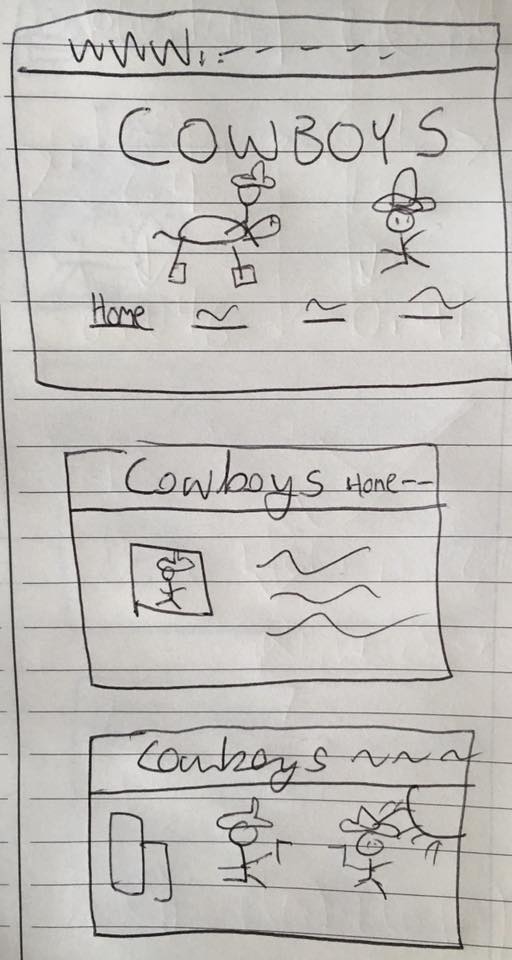 WWW.
COWBOYS
Home
Cowboys Home
Cowboys